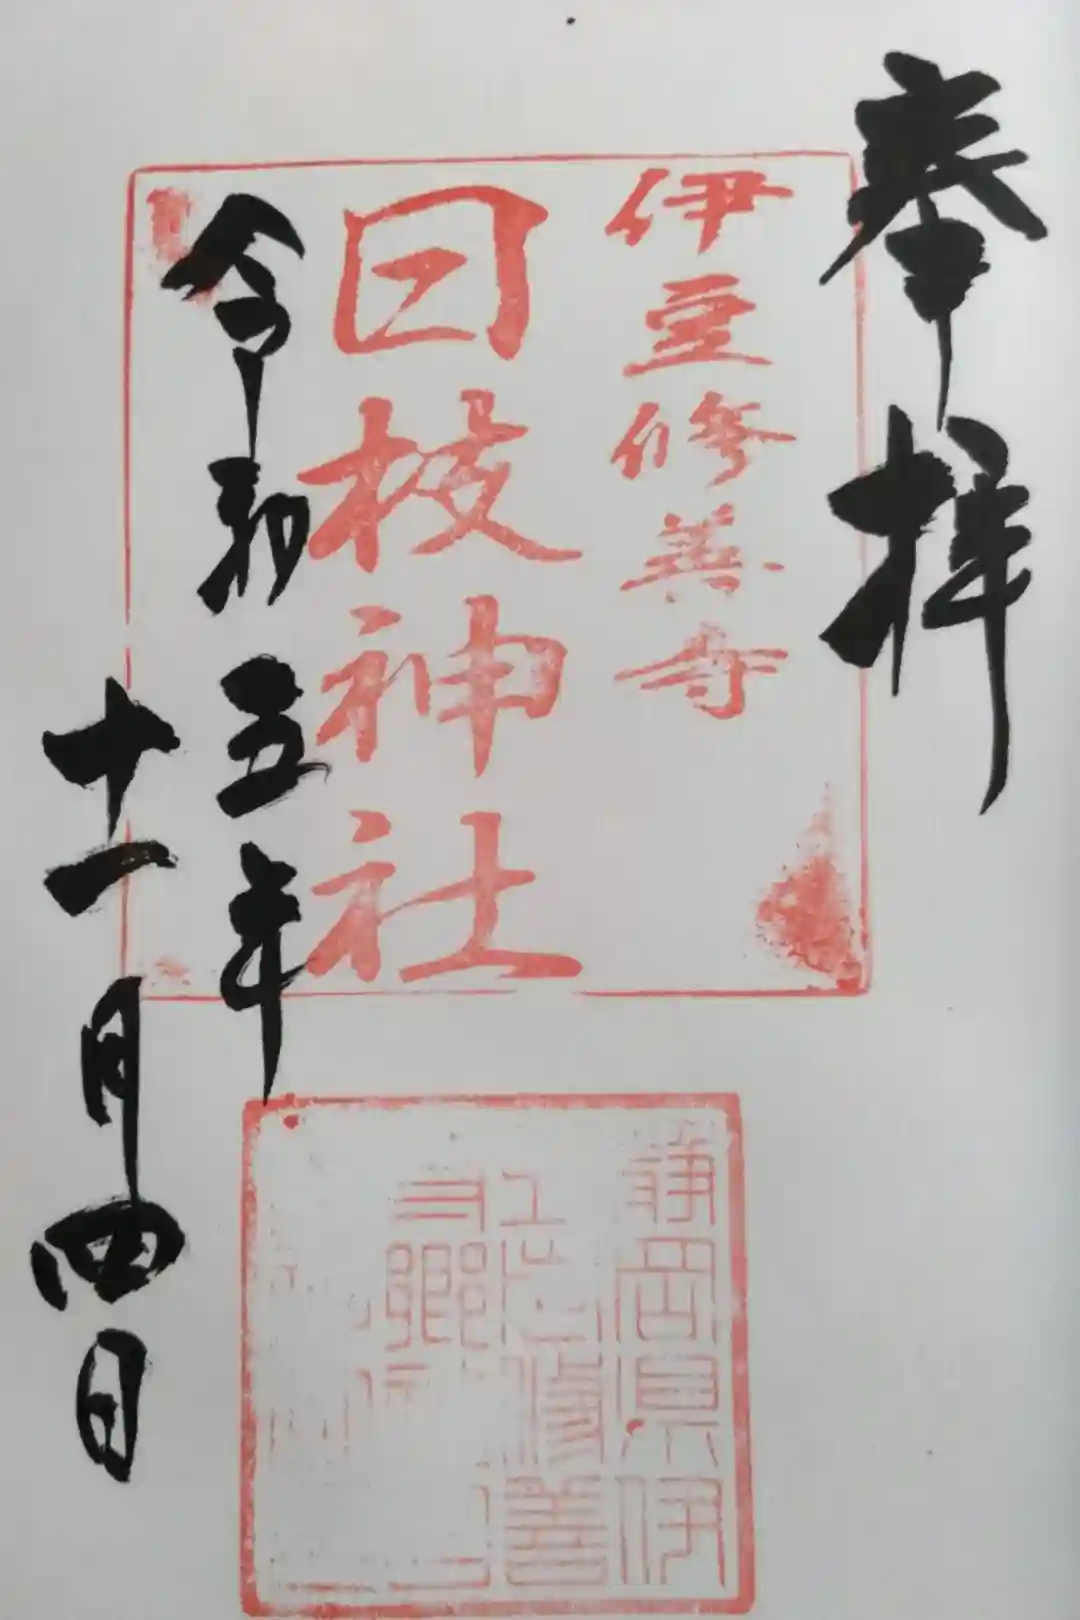 奉拝
伊豆修善寺
日枝神社
令和五年
十一月四日
静岡県伊
修善
郷